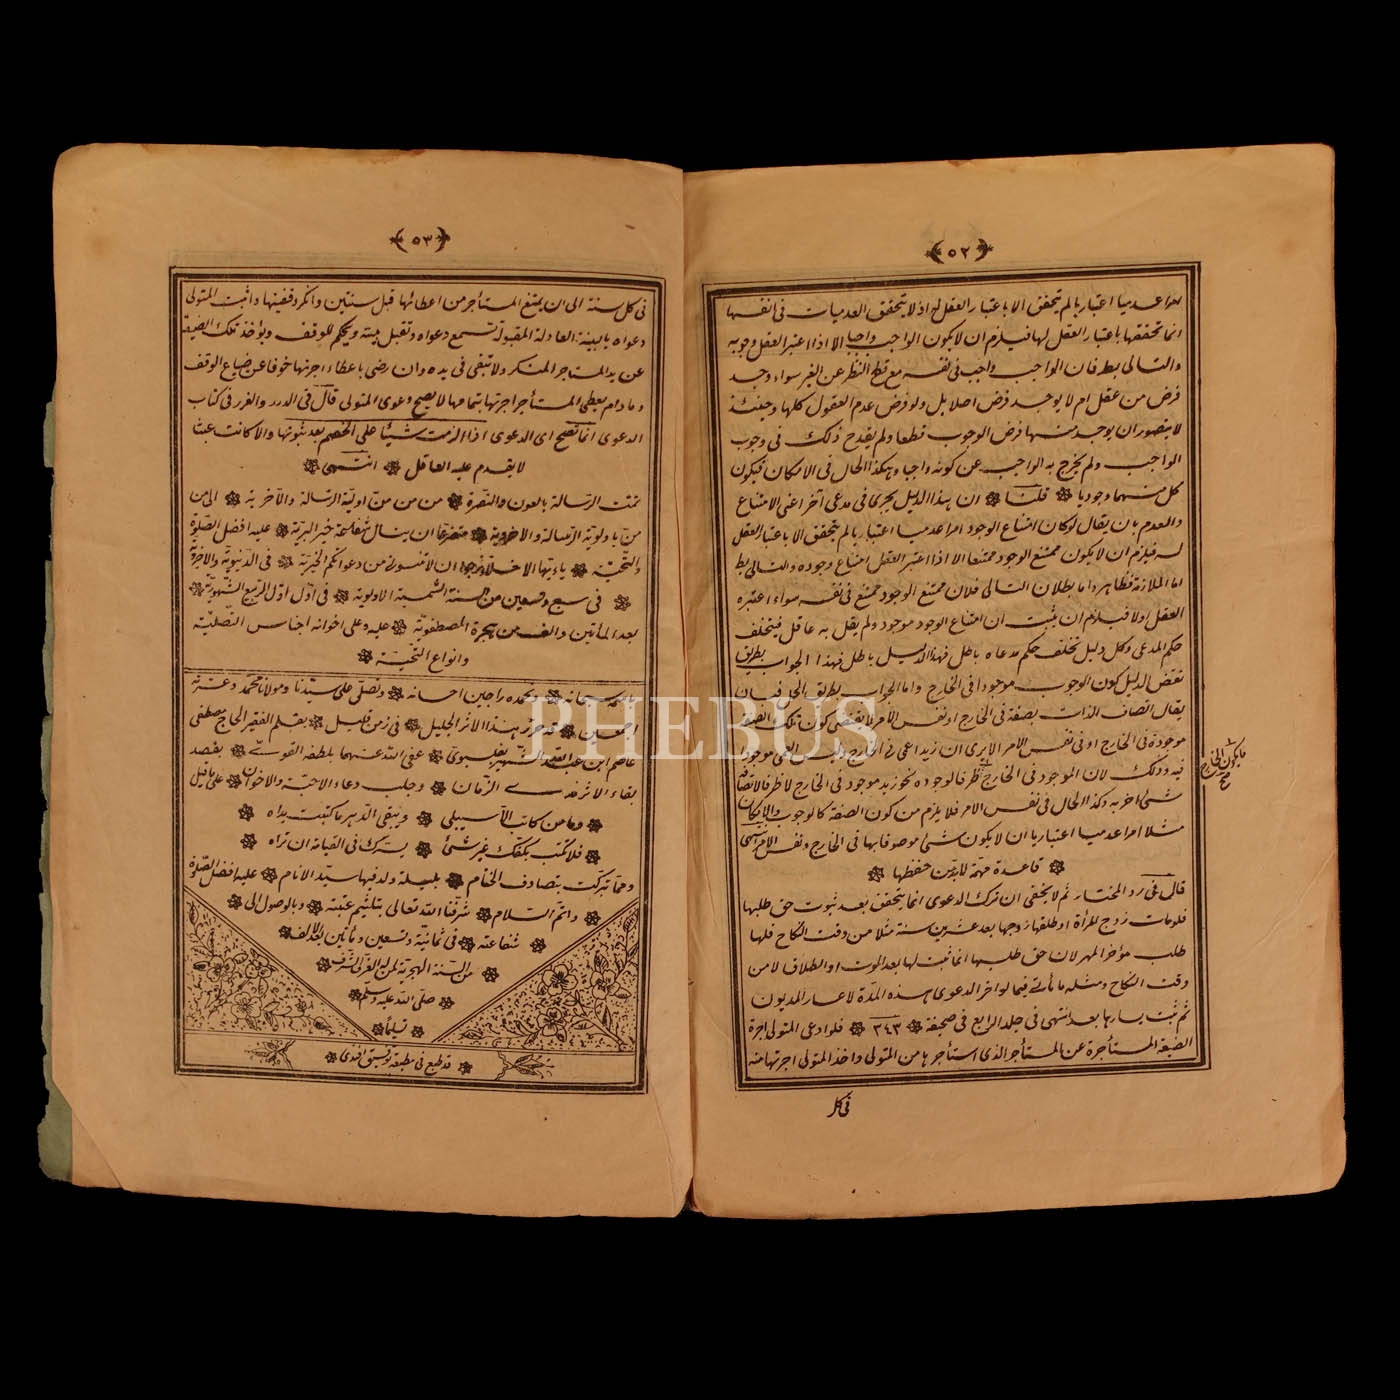 ﴿٥٢﴾
امرا عدميا اعتباريا لم يتحقق الا باعتبار العقل له اذ لا يتحقق العدميات فى انفسها
انما تحققها باعتبار العقل لها فيلزم ان لا يكون الواجب واجبا الا اذا اعتبر العقل وجوبه
والتالى بط فان الواجب واجب فى نفسه مع قطع النظر عن الغير سواء وجد
فرض من عقل ام لا يوجد فرض اصلا بل ولو فرض عدم العقول كلها وحينئذ
لا يتصور ان يوجد منها فرض الوجوب قطعا ولم يقدح ذلك فى وجوب
الواجب ولم يخرج به الواجب عن كونه واجبا وهكذا الحال فى الامكان فيكون
كل منهما وجوديا قلنا ان هذا الدليل يجرى فى مدعى آخر اعنى الامتناع
والعدم بان يقال لو كان امتناع الوجود امرا عدميا اعتباريا لم يتحقق الا باعتبار العقل
له فيلزم ان لا يكون ممتنع الوجود ممتنعا الا اذا اعتبر العقل امتناع وجوده والتالى بط
اما الملازمة فظاهر واما بطلان التالى فلان ممتنع الوجود ممتنع فى نفسه سواء اعتبره
العقل اولا فيلزم ان يثبت ان امتناع الوجود موجود ولم يقل به عاقل فيتخلف
حكم المدعى وكل دليل تخلف حكم مدعاه باطل فهذا الدليل باطل فهذا الجواب بطريق
نقض الدليل كون الوجوب موجودا فى الخارج واما الجواب بطريق الحل فبان
يقال اتصاف الذات بصفة فى الخارج او نفس الامر لا يقتضى كون تلك الصفة
موجودة فى الخارج او فى نفس الامر الا يرى ان زيدا اعمى فى الخارج وليس العمى موجودا
فيه وذلك لان الموجود فى الخارج ظرفا لوجوده نحو زيد موجود فى الخارج لا ظرفا لاتصاف
شئ اخر به وكذا الحال فى نفس الامر فلا يلزم من كون الصفة كالوجوب والامكان
مثلا امرا عدميا اعتباريا ان لا يكون شئ موصوفا بها فى الخارج ونفس الامر انتهى
قاعدة مهمة لا بد من حفظها
قال فى رد المختار ثم لا يخفى ان ترك الدعوى انما يتحقق بعد ثبوت حق طلبها
فلو مات زوج المرأة او طلقها زوجها بعد عشرين سنة مثلا من وقت النكاح فلها
طلب مؤخر المهر لان حق طلبها انما ثبت لها بعد الموت او الطلاق لا من
وقت النكاح ومثله ما يأتى فيما لو اخر الدعوى هذه المدة لاعسار المديون
ثم ثبت يسارها بعد انتهى فى جلد الرابع فى صحيفة ٣٤٣ فلو ادعى المتولى اجرة
الضيعة المستأجرة عن المستأجر الذى استأجرها من المتولى واخذ المتولى اجرتها منه
فى كل
﴿٥٣﴾
فى كل سنة الى ان يمتنع المستأجر من اعطائها قبل سنتين وانكر وقفيتها واثبت المتولى
دعواه بالبينة العادلة المقبولة تسمع دعواه وتقبل بينته ويحكم للوقف ويؤخذ تلك الضيعة
عن يد المستاجر المنكر ولا تبقى فى يده وان رضى باعطاء اجرتها خوفا عن ضياع الوقف
وما دام يعطى المستأجر اجرتها بتمامها لا يصح دعوى المتولى قال فى الدرر والغرر فى كتاب
الدعوى انما تصح اى الدعوى اذا الزمت شيئا على الخصم بعد ثبوتها والا كانت عبثا
لا يقدم عليه العاقل انتهى
تمت الرسالة بالعون والنصرة من من منّ اولية الرسالة والآخرية الى من
منّ باولوية الرسالة والاخروية متضرعا ان ينال شفاعة خير البرية عليه افضل الصلوة
والتحية الاخلاء ان لا تنسونى من دعوائكم الخيرية فى الدنيوية والاخروية
فى سبع وتسعين من السنة الشمسية الاولوية فى اول اول الربيع الشهورية
بعد المأتين والف من هجرة المصطفوية عليه وعلى اخوانه اجناس التصلية
وانواع التحية
باسمه سبحانه ونحمده راجين احسانه ونصلى على سيدنا ومولانا محمد وعترته
اجمعين قد حرر هذا الاثر الجليل فى زمن قليل بقلم الفقير الحاج مصطفى
عاصم ابن عبد الله عفى الله عنهما بلطفه القوى بقصد
بقاء الاثر فى الزمان وجلب دعاء الاحبة والاخوان على ما قيل
وما من كاتب الا سيبلى ويبقى الدهر ما كتبت يداه
فلا تكتب بكفك غير شئ يسرك فى القيامة ان تراه
بتصادف الختام بليلة ولد فيها سيد الانام عليه افضل الصلوة
واتم السلام شرفنا الله تعالى بتلثيم عتبته وبالوصول الى
شفاعته فى ثمانية وتسعين ومأتين بعد الالف
من السنة الهجرية لمن له العز والشرف
صلى الله عليه وسلم
تسليما
قد طبع فى مطبعة توفيق افندى
PHEBUS